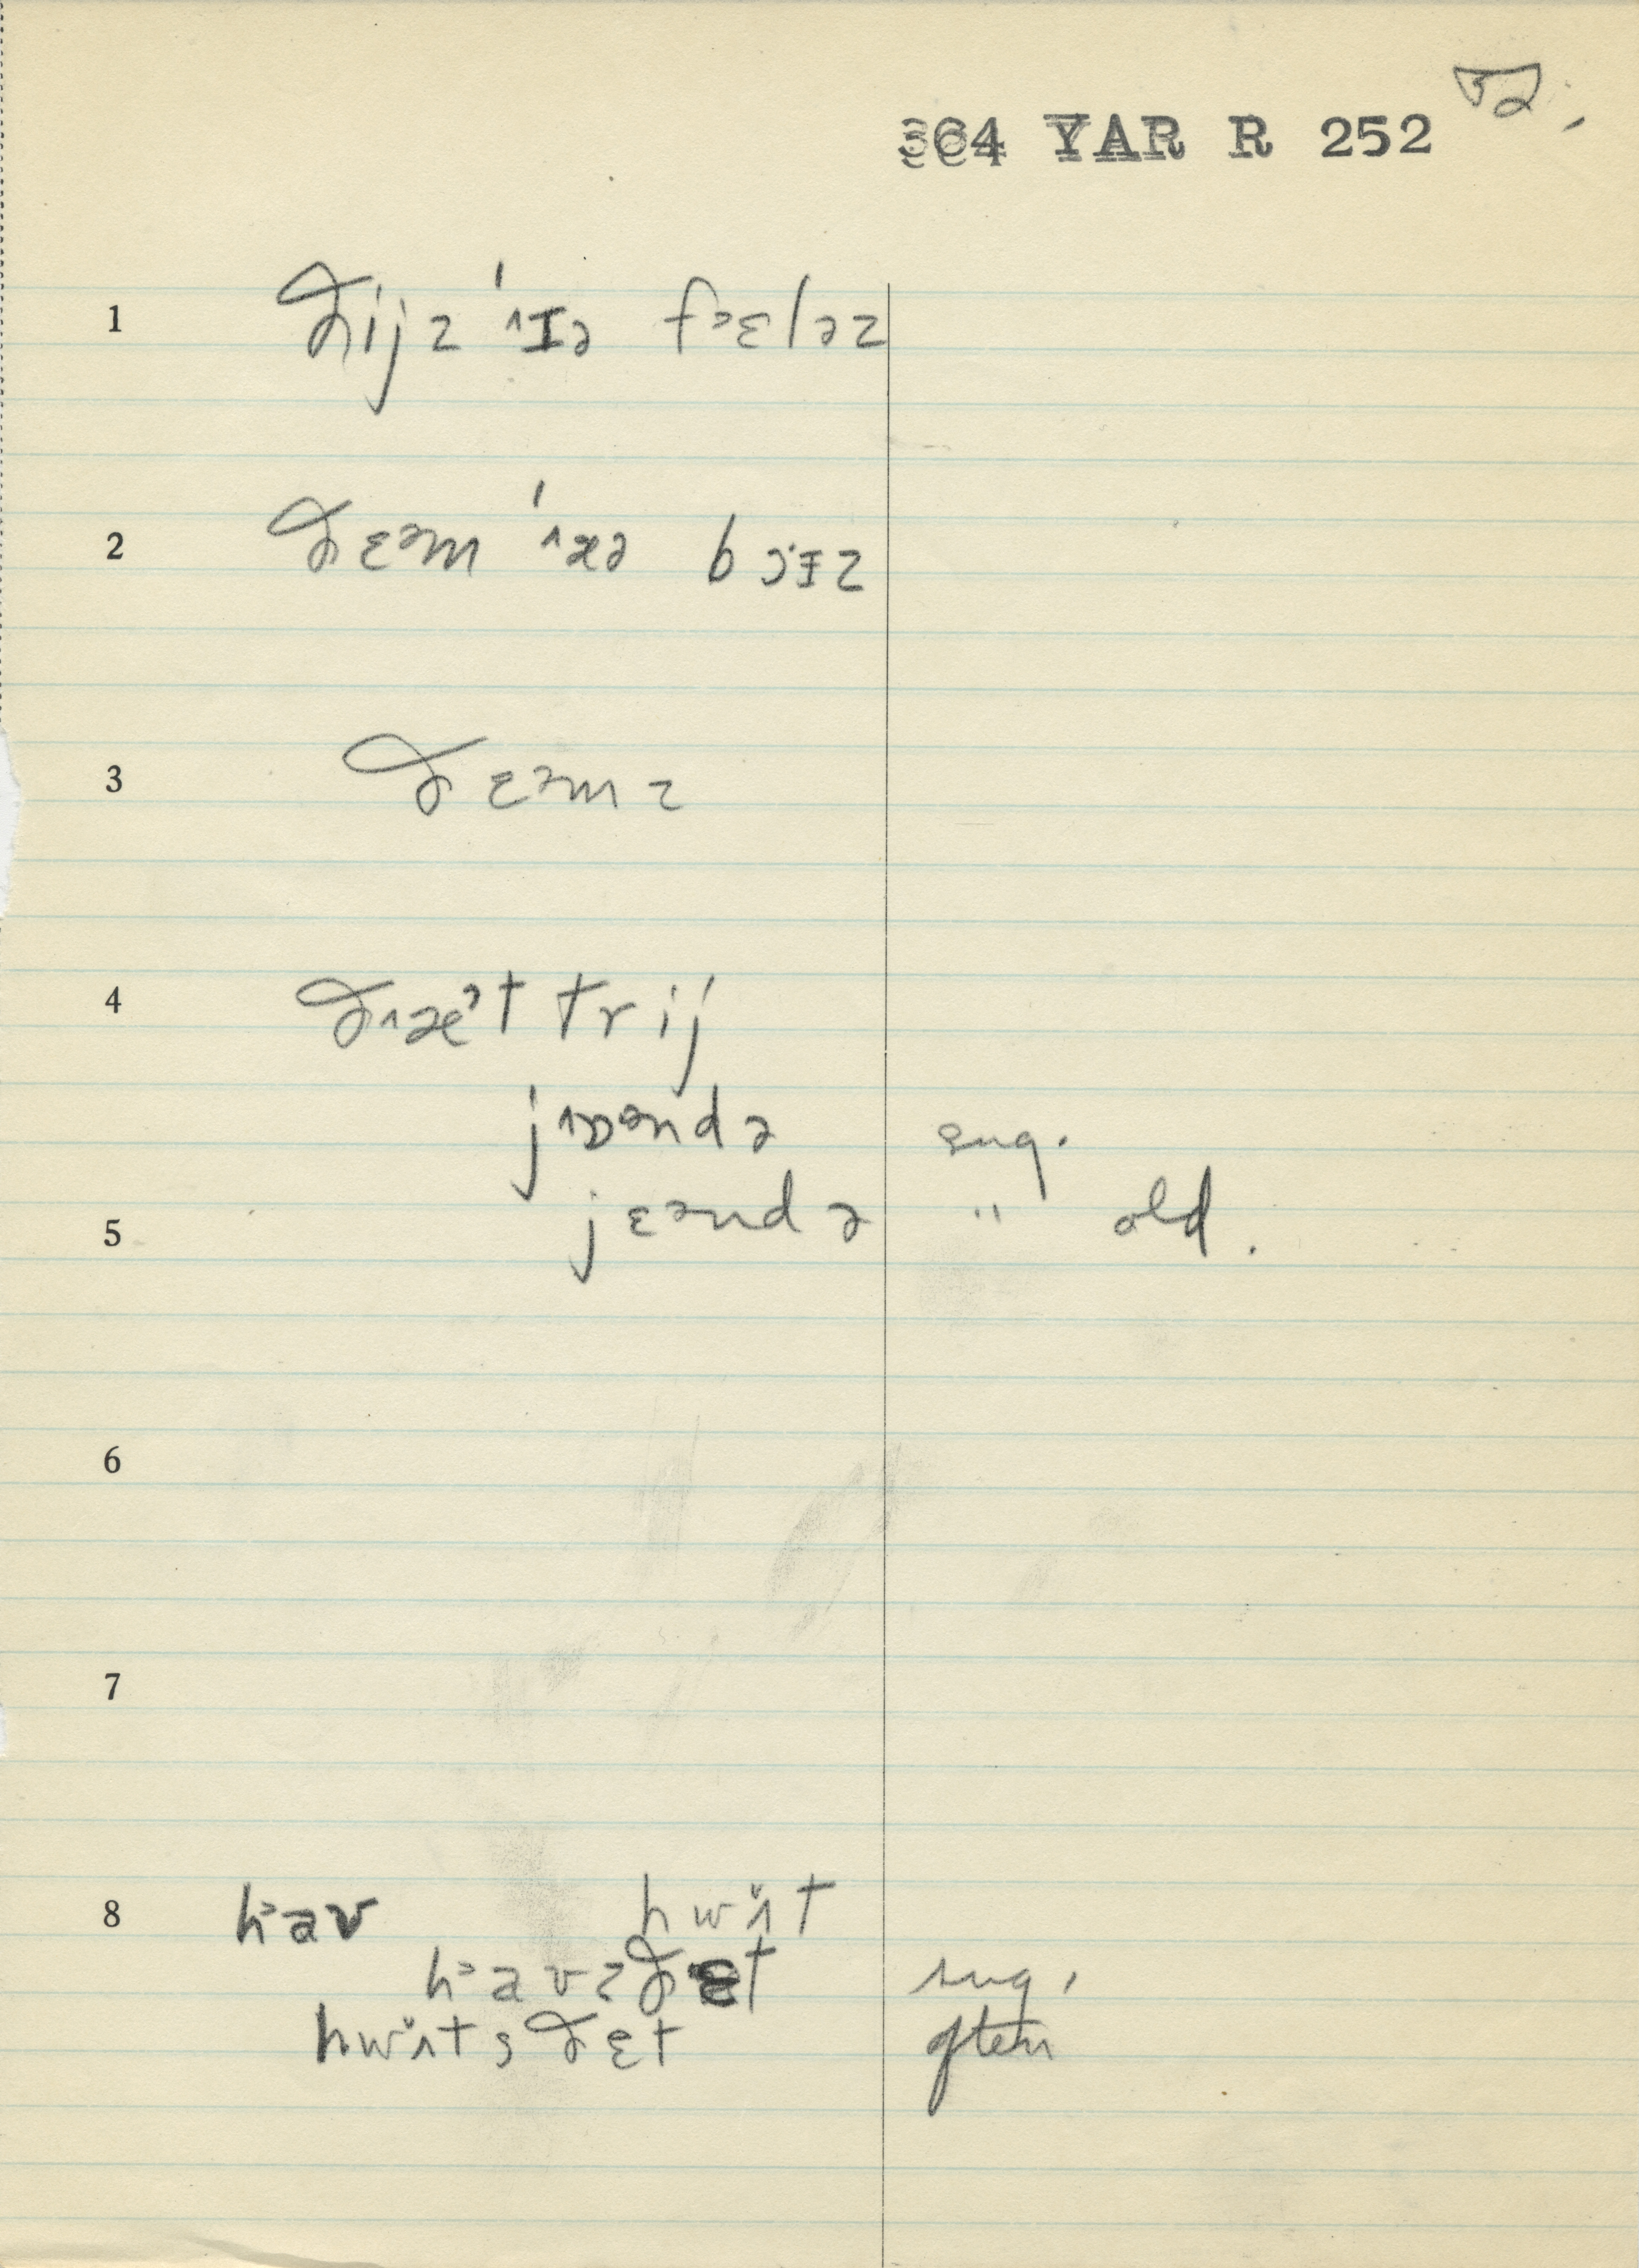 364 YAR R 252 52.
1 ðijz ˈɪə fɛləz
2 ðɛəm ˈæə bɔɪz
3 ðɛəmz
4 ðæᵊt trij
jɒəndə sug.
5 jɛəndə " old.
6
7
8 hav hwʌt
havzðɛt sug.
hwʌtsðɛt often